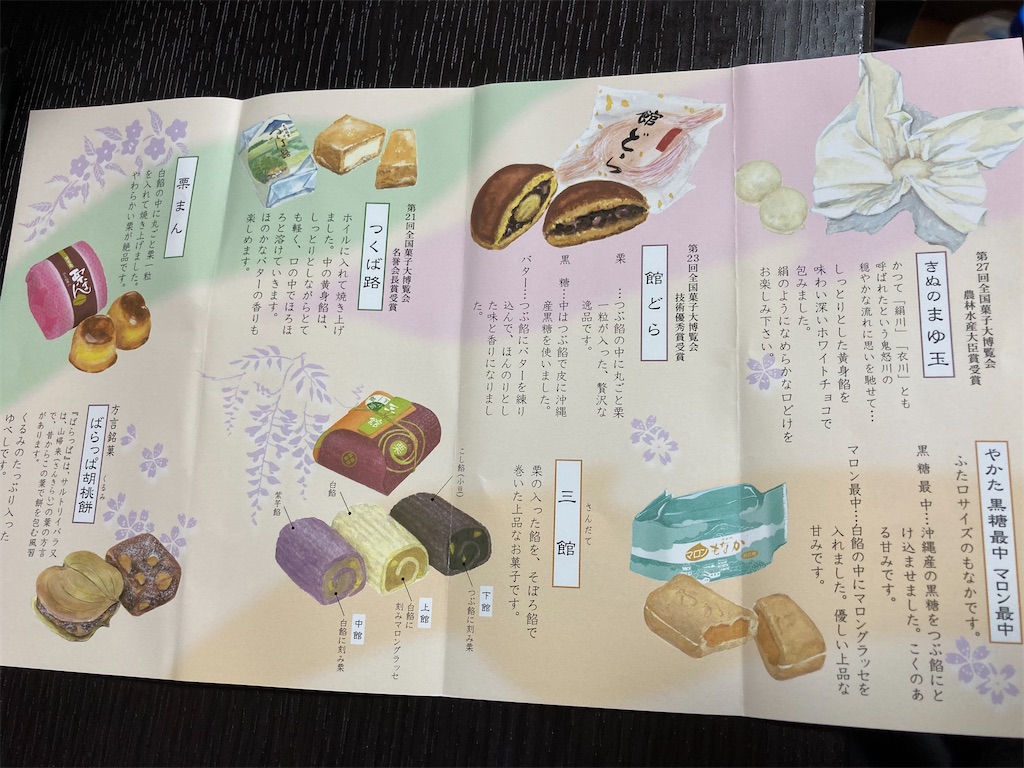 第27回全国菓子大博覧会
農林水産大臣賞受賞
きぬのまゆ玉
かつて「絹川」「衣川」とも
呼ばれたという鬼怒川の
穏やかな流れに思いを馳せて…
しっとりとした黄身餡を
味わい深いホワイトチョコで
包みました。
絹のようになめらかな口どけを
お楽しみ下さい。
やかた 黒糖最中 マロン最中
ふた口サイズのもなかです。
黒糖最中…沖縄産の黒糖をつぶ餡にと
け込ませました。こくのあ
る甘みです。
マロン最中…白餡の中にマロングラッセを
入れました。優しい上品な
甘みです。
館どら
第23回全国菓子大博覧会
技術優秀賞受賞
館どら
栗 …つぶ餡の中に丸ごと栗
一粒が入った、贅沢な
逸品です。
黒糖…中はつぶ餡で皮に沖縄
産黒糖を使いました。
バター…つぶ餡にバターを練り
込んで、ほんのりとし
た味と香りになりまし
た。
さんだて
三館
栗の入った餡を、そぼろ餡で
巻いた上品なお菓子です。
マロン
もなか
第21回全国菓子大博覧会
名誉会長賞受賞
つくば路
ホイルに入れて焼き上げ
ました。中の黄身餡は、
しっとりとしながらとて
も軽く、口の中でほろほ
ろと溶けていきます。
ほのかなバターの香りも
楽しめます。
こし餡(小豆)
白餡
紫芋餡
下館
つぶ餡に刻み栗
上館
白餡に
刻みマロングラッセ
中館
白餡に刻み栗
栗まん
白餡の中に丸ごと栗一粒
を入れて焼き上げました。
やわらかい栗が絶品です。
方言銘菓
くるみ
ばらっぱ胡桃餅
『ばらっぱ』は、サルトリイバラ又
は、山帰来(さんきらい)の葉の方言
で、昔からこの葉で餅を包む風習
があります。
くるみのたっぷり入った
ゆべしです。